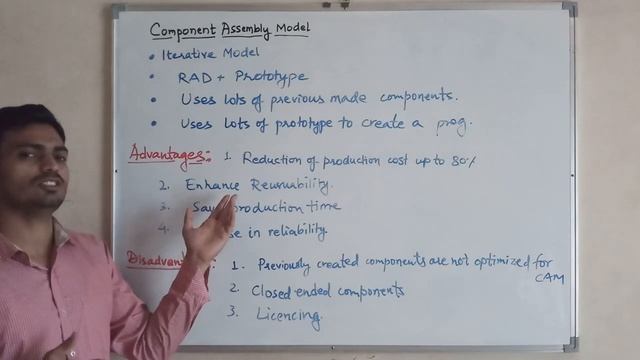 Component Assembly Model
• Iterative Model
• RAD + Prototype
• Uses lots of previous made components.
• Uses lots of prototype to create a prog.
Advantages: 1. Reduction of production cost up to 80%
2. Enhance
3. production time
4. in reliability
1. Previously created components are not optimized for
CAM
2. Closed ended components
3. Licencing.